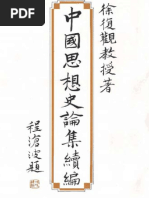 徐復觀教授著
中國思想史論集續編
程滄波題